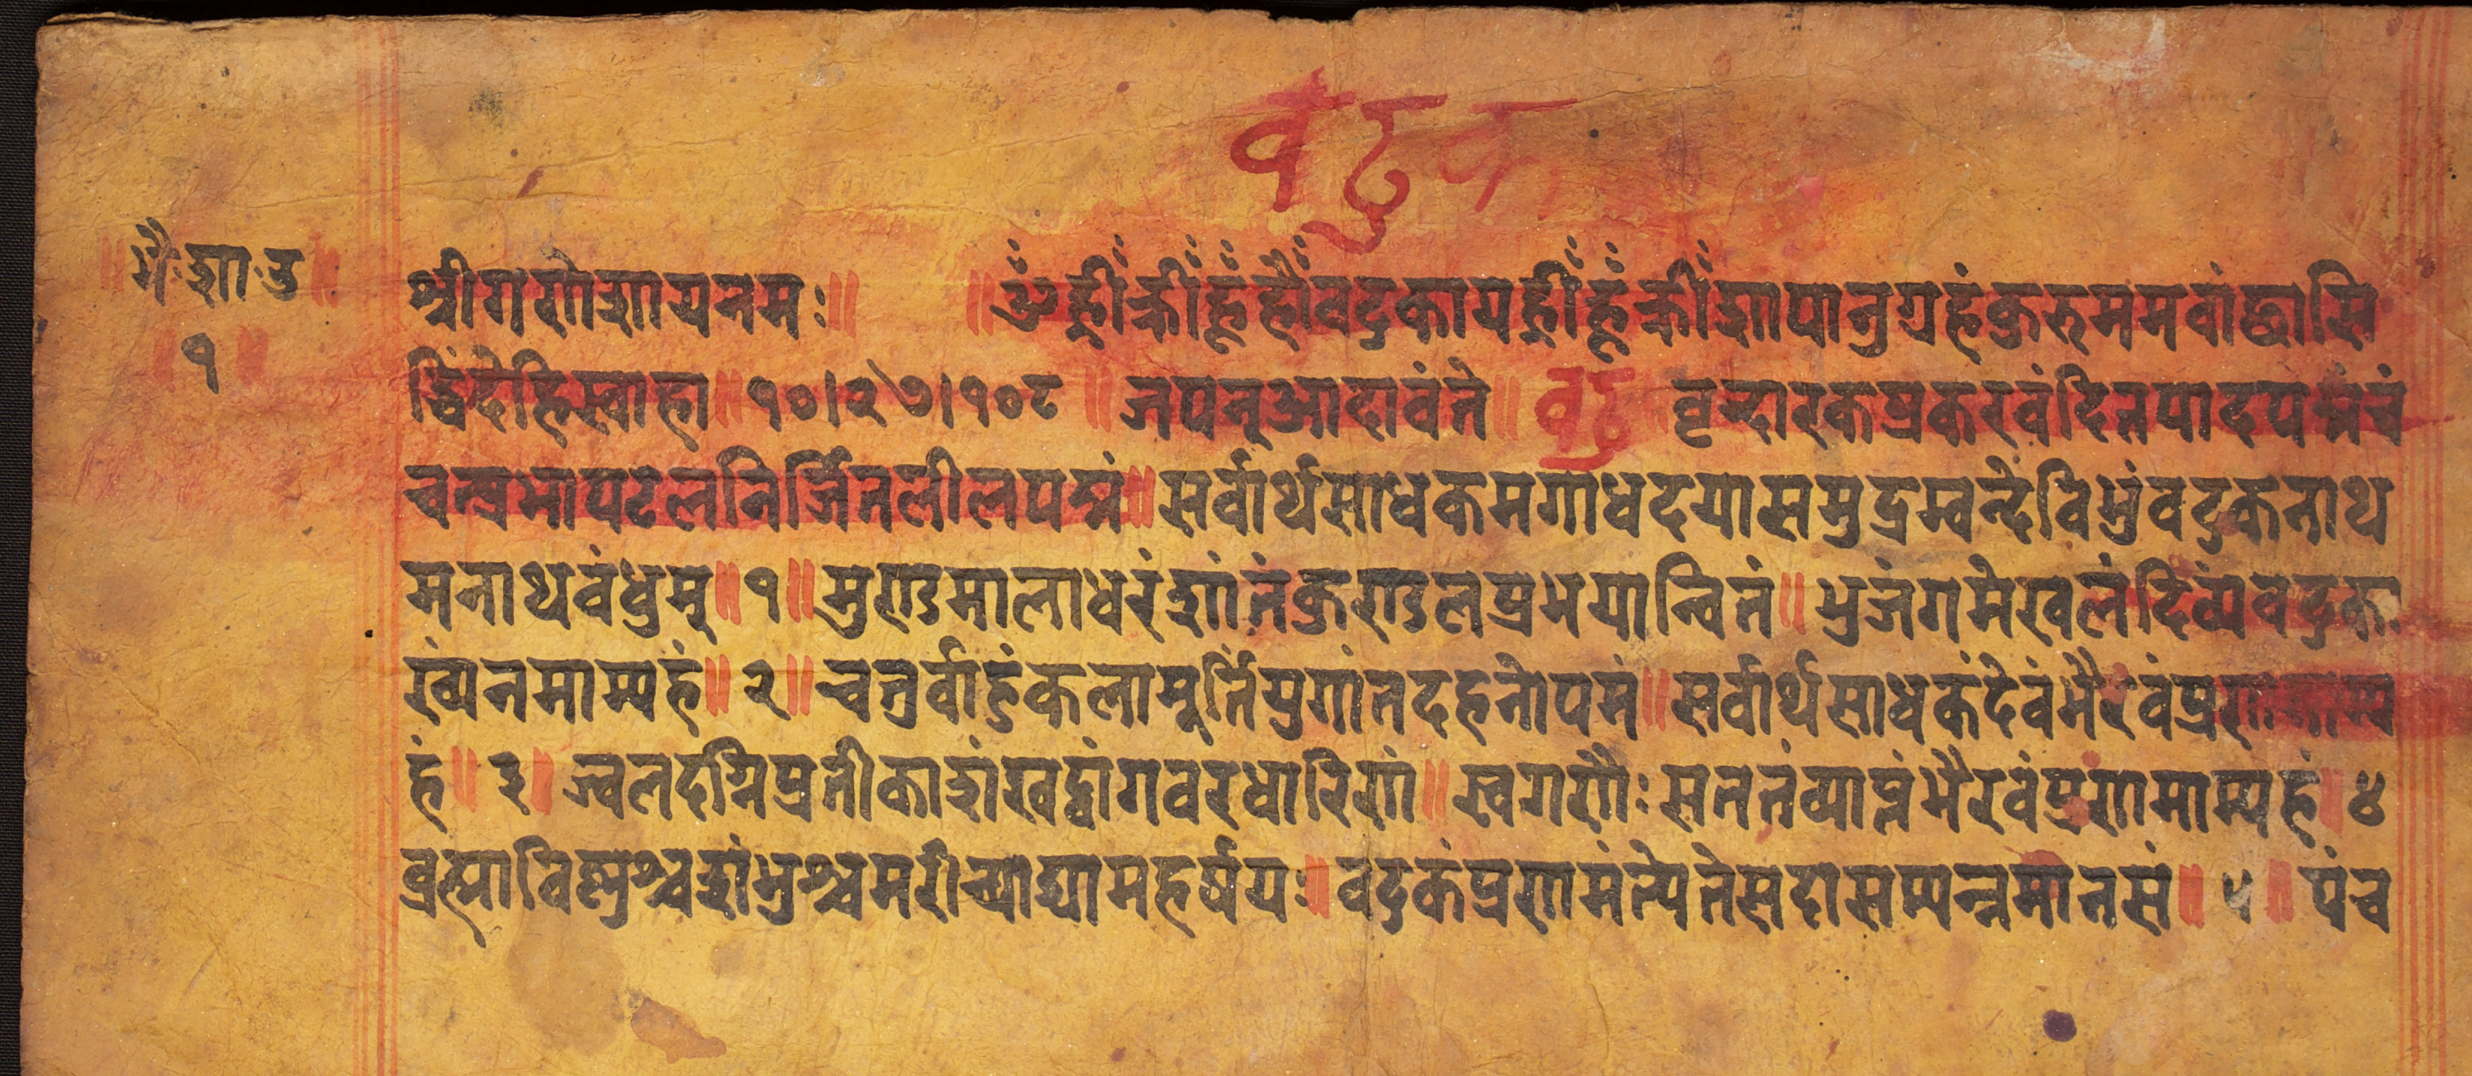 वटुक
॥भैःशाःउ॥
॥१॥
श्रीगणेशायनमः॥ ॥ॐँह्रीँक्रीँहूँह्रौँवटुकायह्रीँहूँक्रीँशापानुग्रहंकुरुममवांछासि
द्धिंदेहिस्वाहा॥१०।२७।१०८॥जपनूआदावंते॥वटु वृन्दारकप्रकरवंदितपादपद्मंचं
चत्प्रभापटलनिर्जितलीलपद्मं॥सर्वार्थसाधकमगाधदयासमुद्रम्वन्देविभुंवटुकनाथ
मनाथवंधुम्॥१॥मुण्डमालाधरंशांतंकुण्डलप्रभयान्वितं॥भुजंगमेखलंदिव्यंवटुका
ख्यंनमाम्यहं॥२॥चतुर्वाहुंकलामूर्तिंयुगांतदहनोपमं॥सर्वार्थसाधकंदेवंभैरवंप्रणमाम्य
हं॥३॥ज्वलदग्निप्रतीकाशंखट्वांगवरधारिणं॥स्वगणैःसततंव्याप्तंभैरवंप्रणमाम्यहं॥४
व्रह्माविष्णुश्चशंभुश्चमरीच्याद्यामहर्षयः॥वटुकंप्रणमंत्येतेसदासम्पन्नमानसं॥५॥पंच